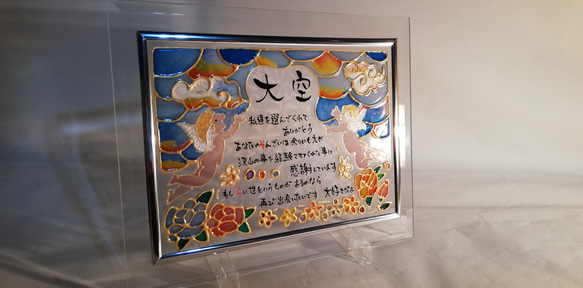 大空
私達を選んでくれて
ありがとう
あなたのそんざいは余りにも大き
沢山の事を経験させてくれた事に
感謝しています
もし 世というものがあるのなら
再び出会いたいです 大好きだよ